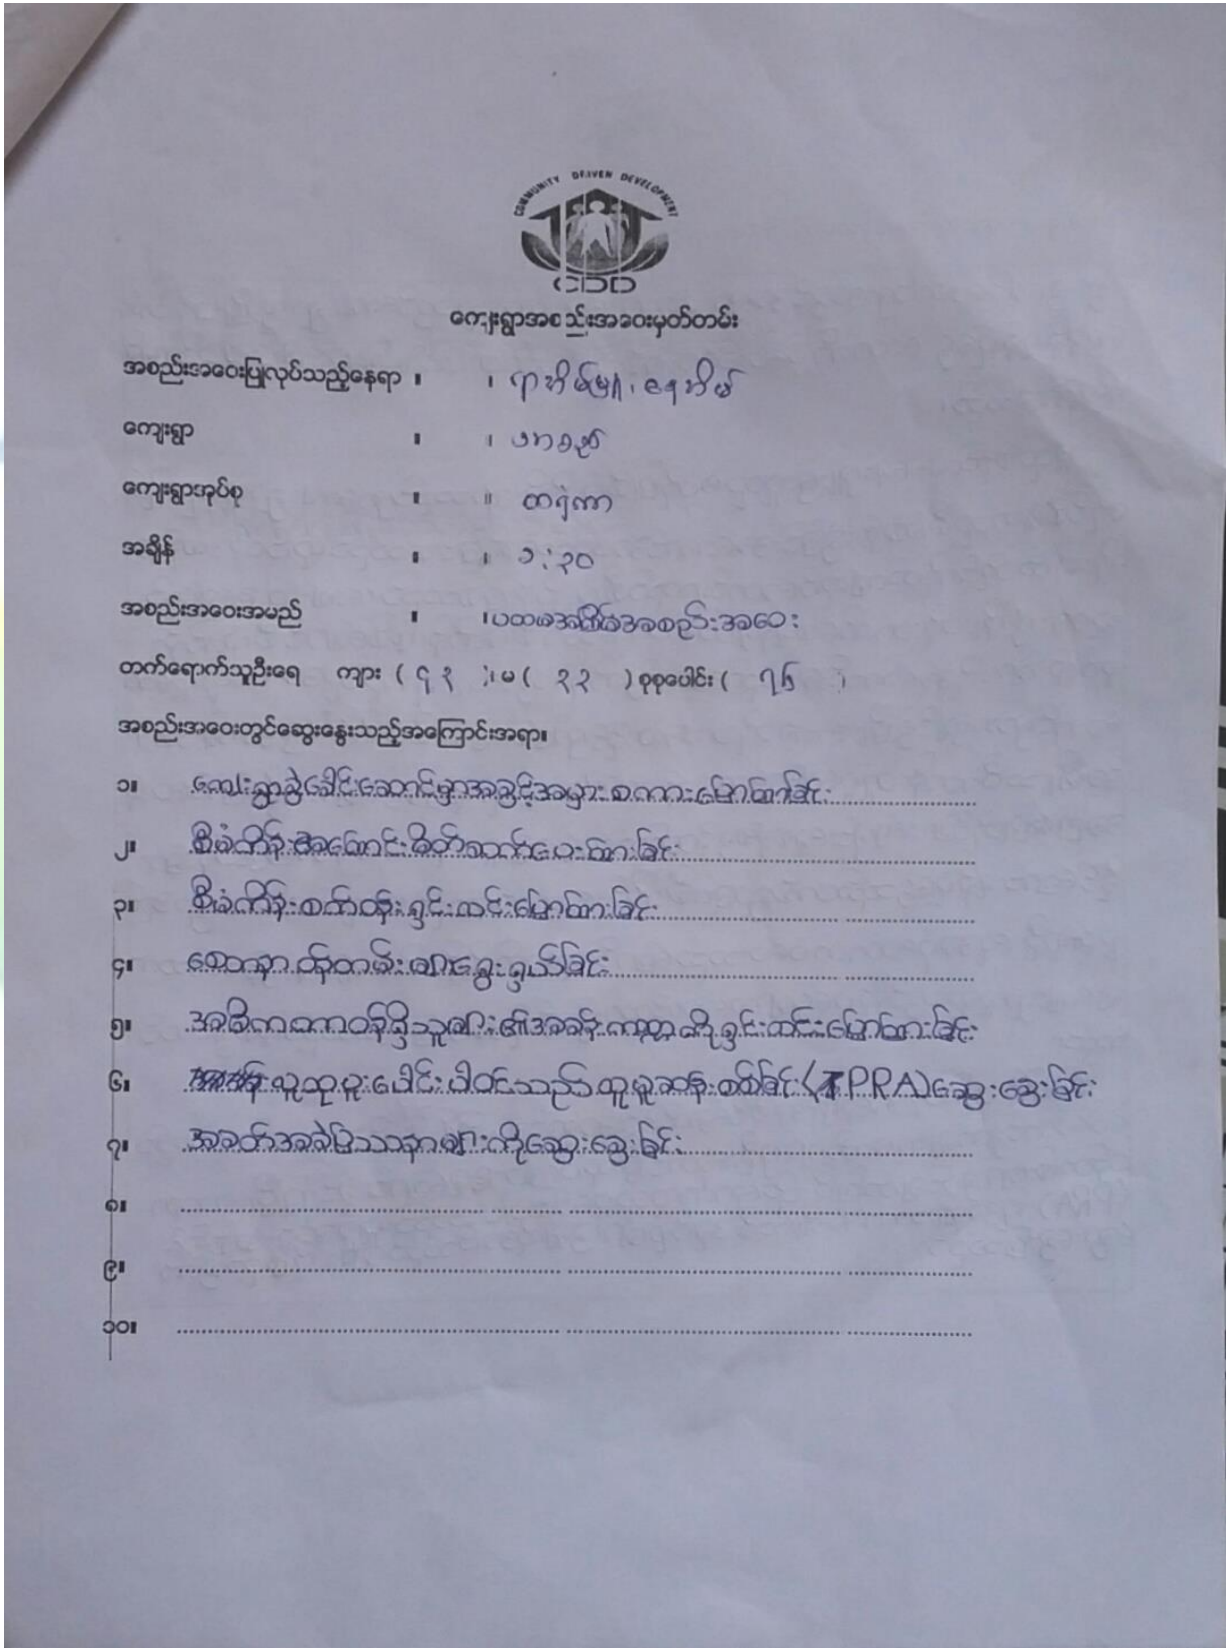 COMMUNITY DRIVEN DEVELOPMENT
CDD
ကျေးရွာအစည်းအဝေးမှတ်တမ်း
အစည်းအဝေးပြုလုပ်သည့်နေရာ ။ ၊ ရာအိမ်မှူး၊ နေအိမ်
ကျေးရွာ ။ ၊
ကျေးရွာအုပ်စု ။ ။ ထရံကာ
အချိန် ။ ၊ ၁:၃၀
အစည်းအဝေးအမည် ။ ၊ ပထမအကြိမ်အစည်းအဝေး
တက်ရောက်သူဦးရေ ကျား ( ၄၃ )၊ မ ( ၃၃ ) စုစုပေါင်း ( ၇၆ )
အစည်းအဝေးတွင်ဆွေးနွေးသည့်အကြောင်းအရာ။
၁။ ကျေးရွာခွဲခေါင်းဆောင်မှာအခွင့်အမှားစကားပြောကြားခြင်း
၂။ စီမံကိန်းအကြောင်းမိတ်ဆက်ပေးကြားခြင်း
၃။ စီမံကိန်းစက်ဝန်းရှင်းလင်းပြောကြားခြင်း
၄။ စေတနာ့ဝန်ထမ်းများရွေးချယ်ခြင်း
၅။ အဓိကတာဝန်ရှိသူများ၏အခန်းကဏ္ဍကိုရှင်းလင်းပြောကြားခြင်း
၆။ လူထုပူးပေါင်းပါဝင်သည့်လူမှုဆန်းစစ်ခြင်း (PRA) ဆွေးနွေးခြင်း
၇။ အခက်အခဲပြဿနာများကိုဆွေးနွေးခြင်း
၈။
၉။
၁၀။